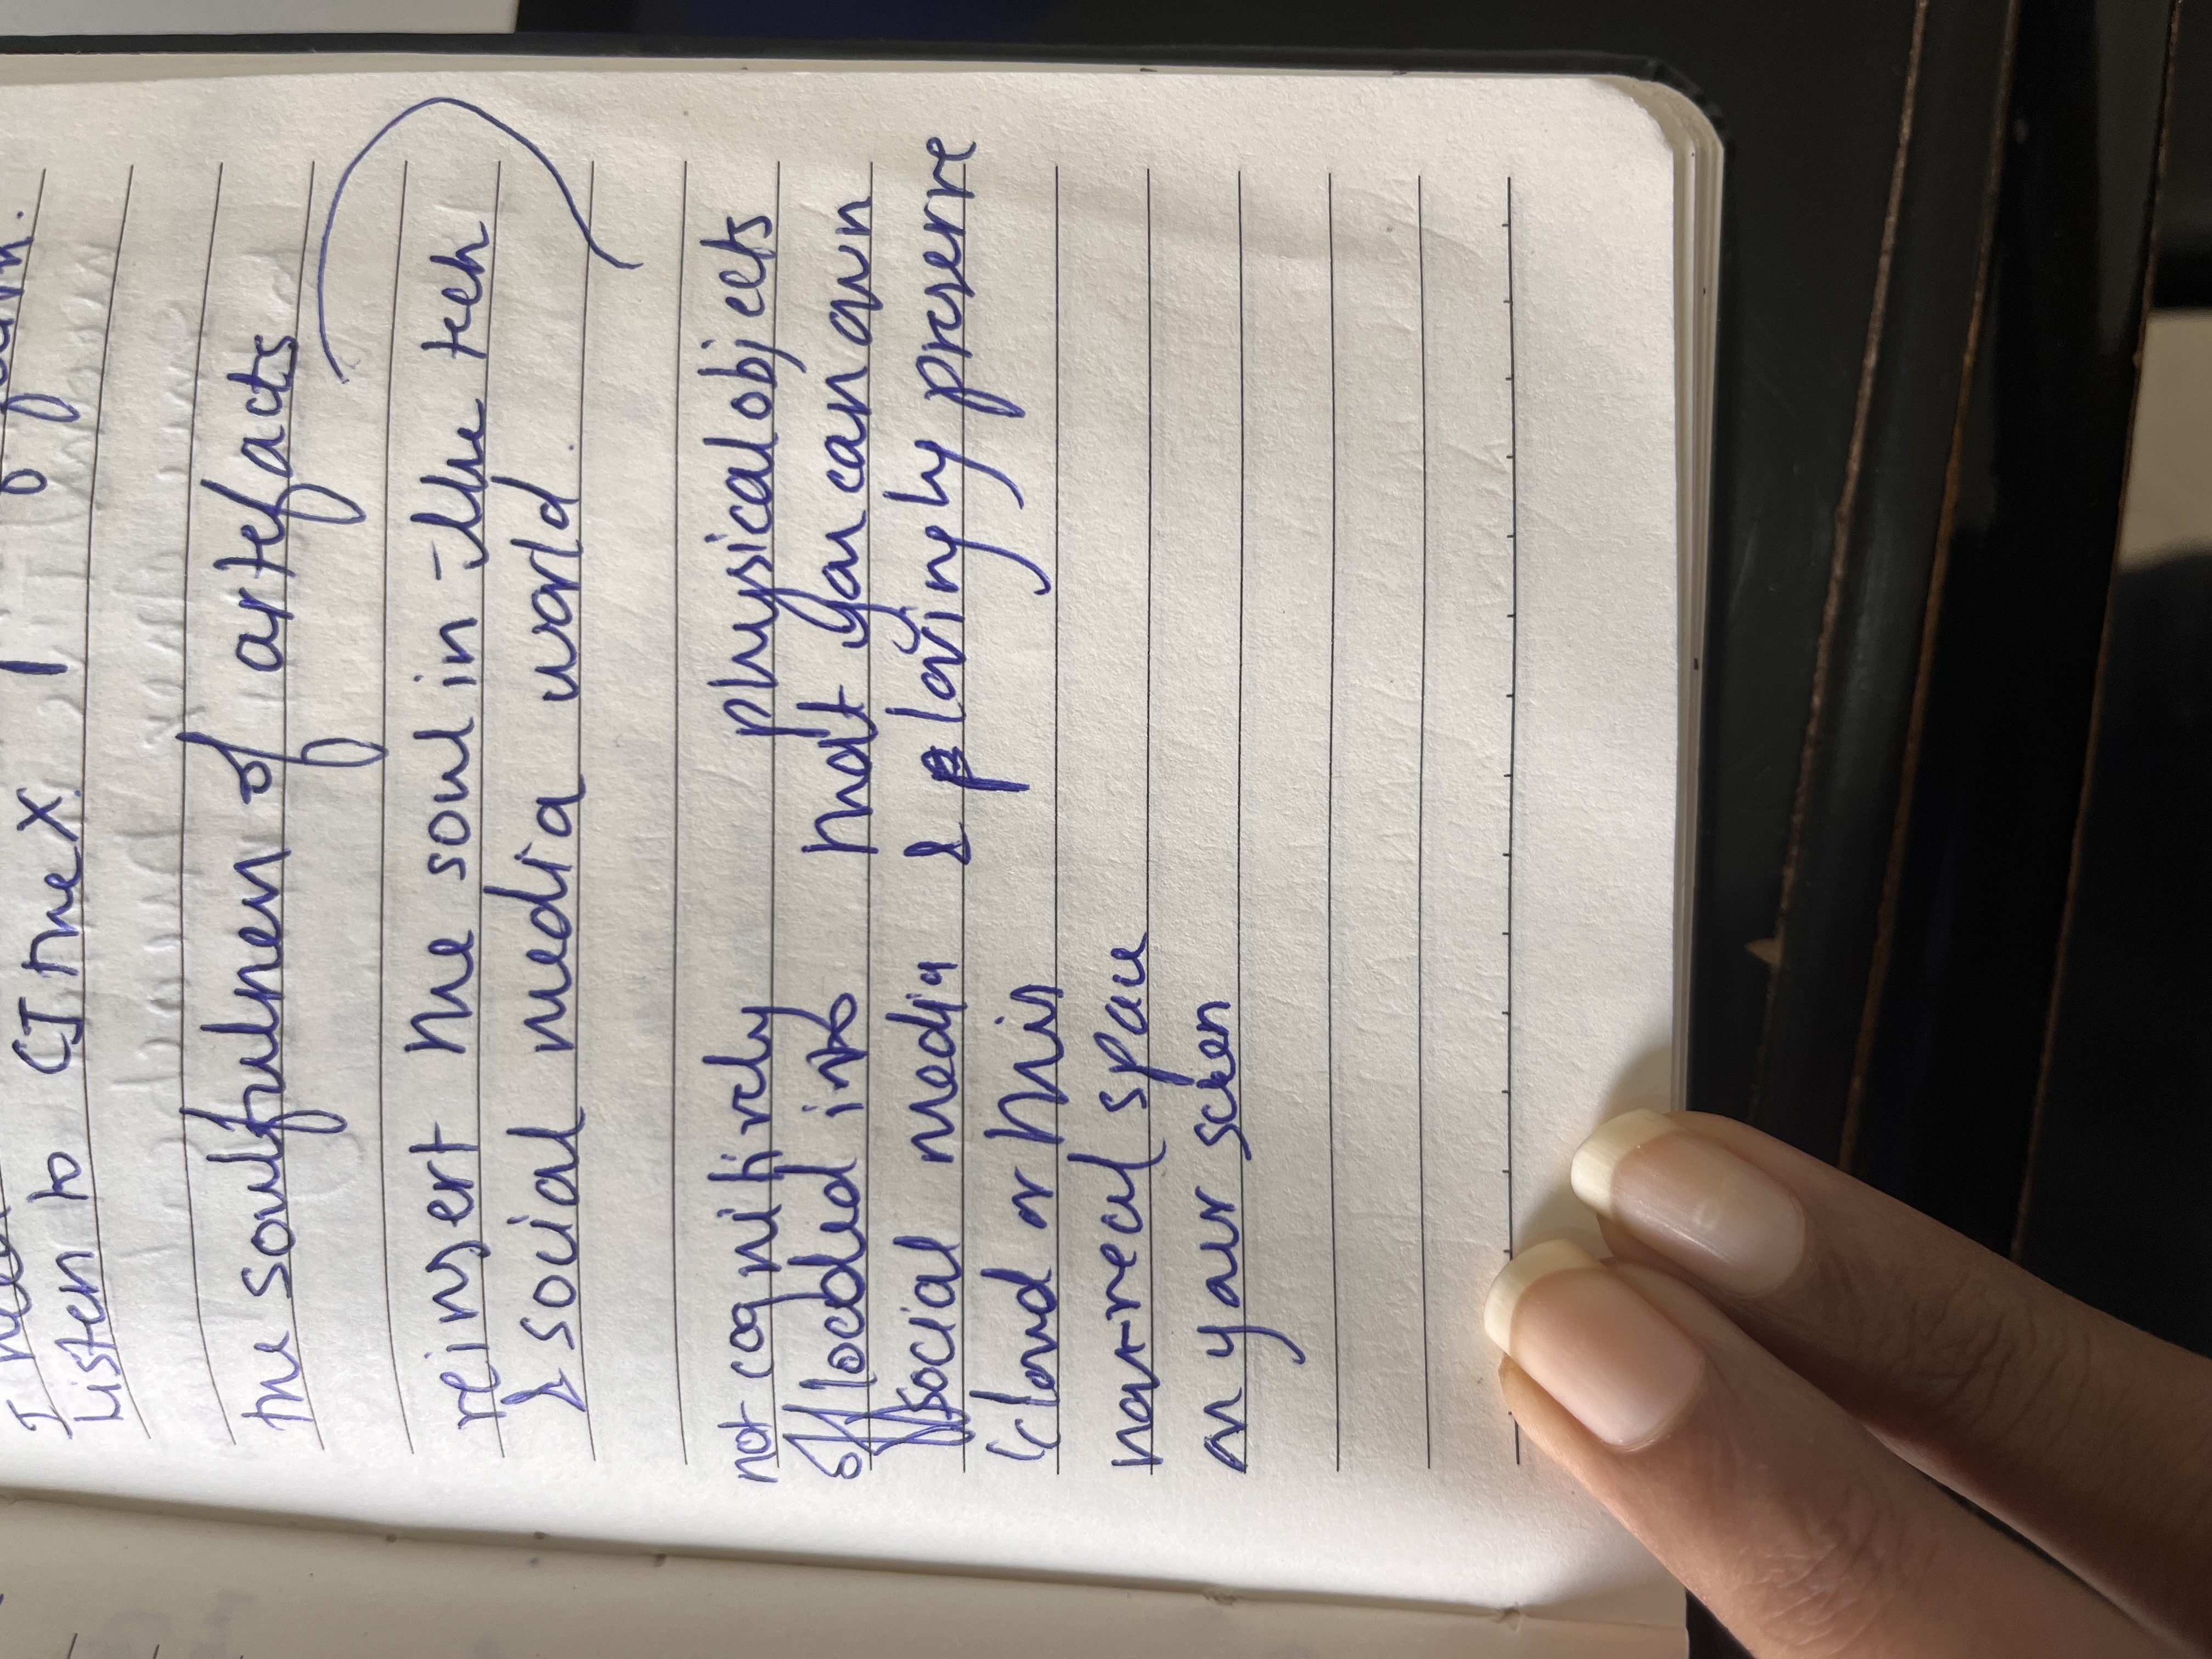 Listen to CJ the X
the soulfulness of artefacts
reinsert the soul in the tech
& social media world.
not cognitively
offloaded into
social media
cloud or this
not-real space
on your screen
physical objects
that you can own
& lovingly preserve